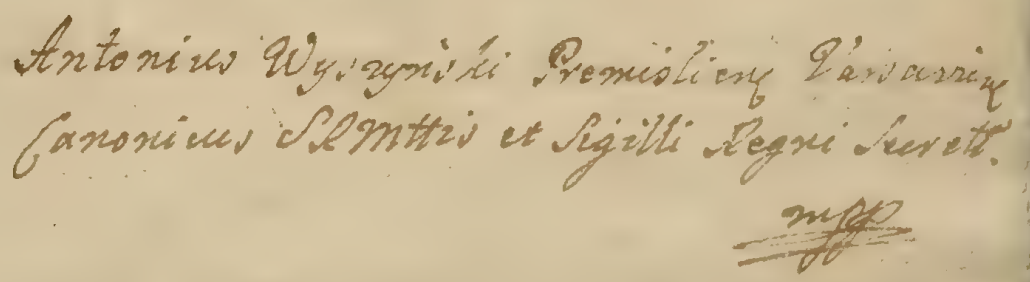 Antonius Wyszynski Premislienỹ Varsavienỹ
Canonicus SRMttis et Sigilli Regni Secrett.
mpp